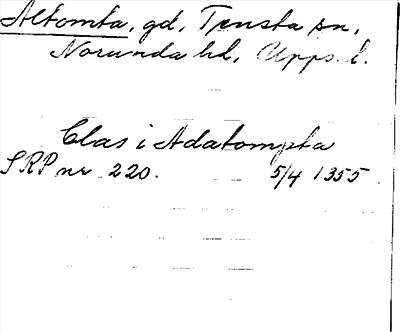 Altomta, gd, Tensta sn,
Norunda hd, Upps. l.
Clas i Adatompta
SRP nr 220. 5/4 1355